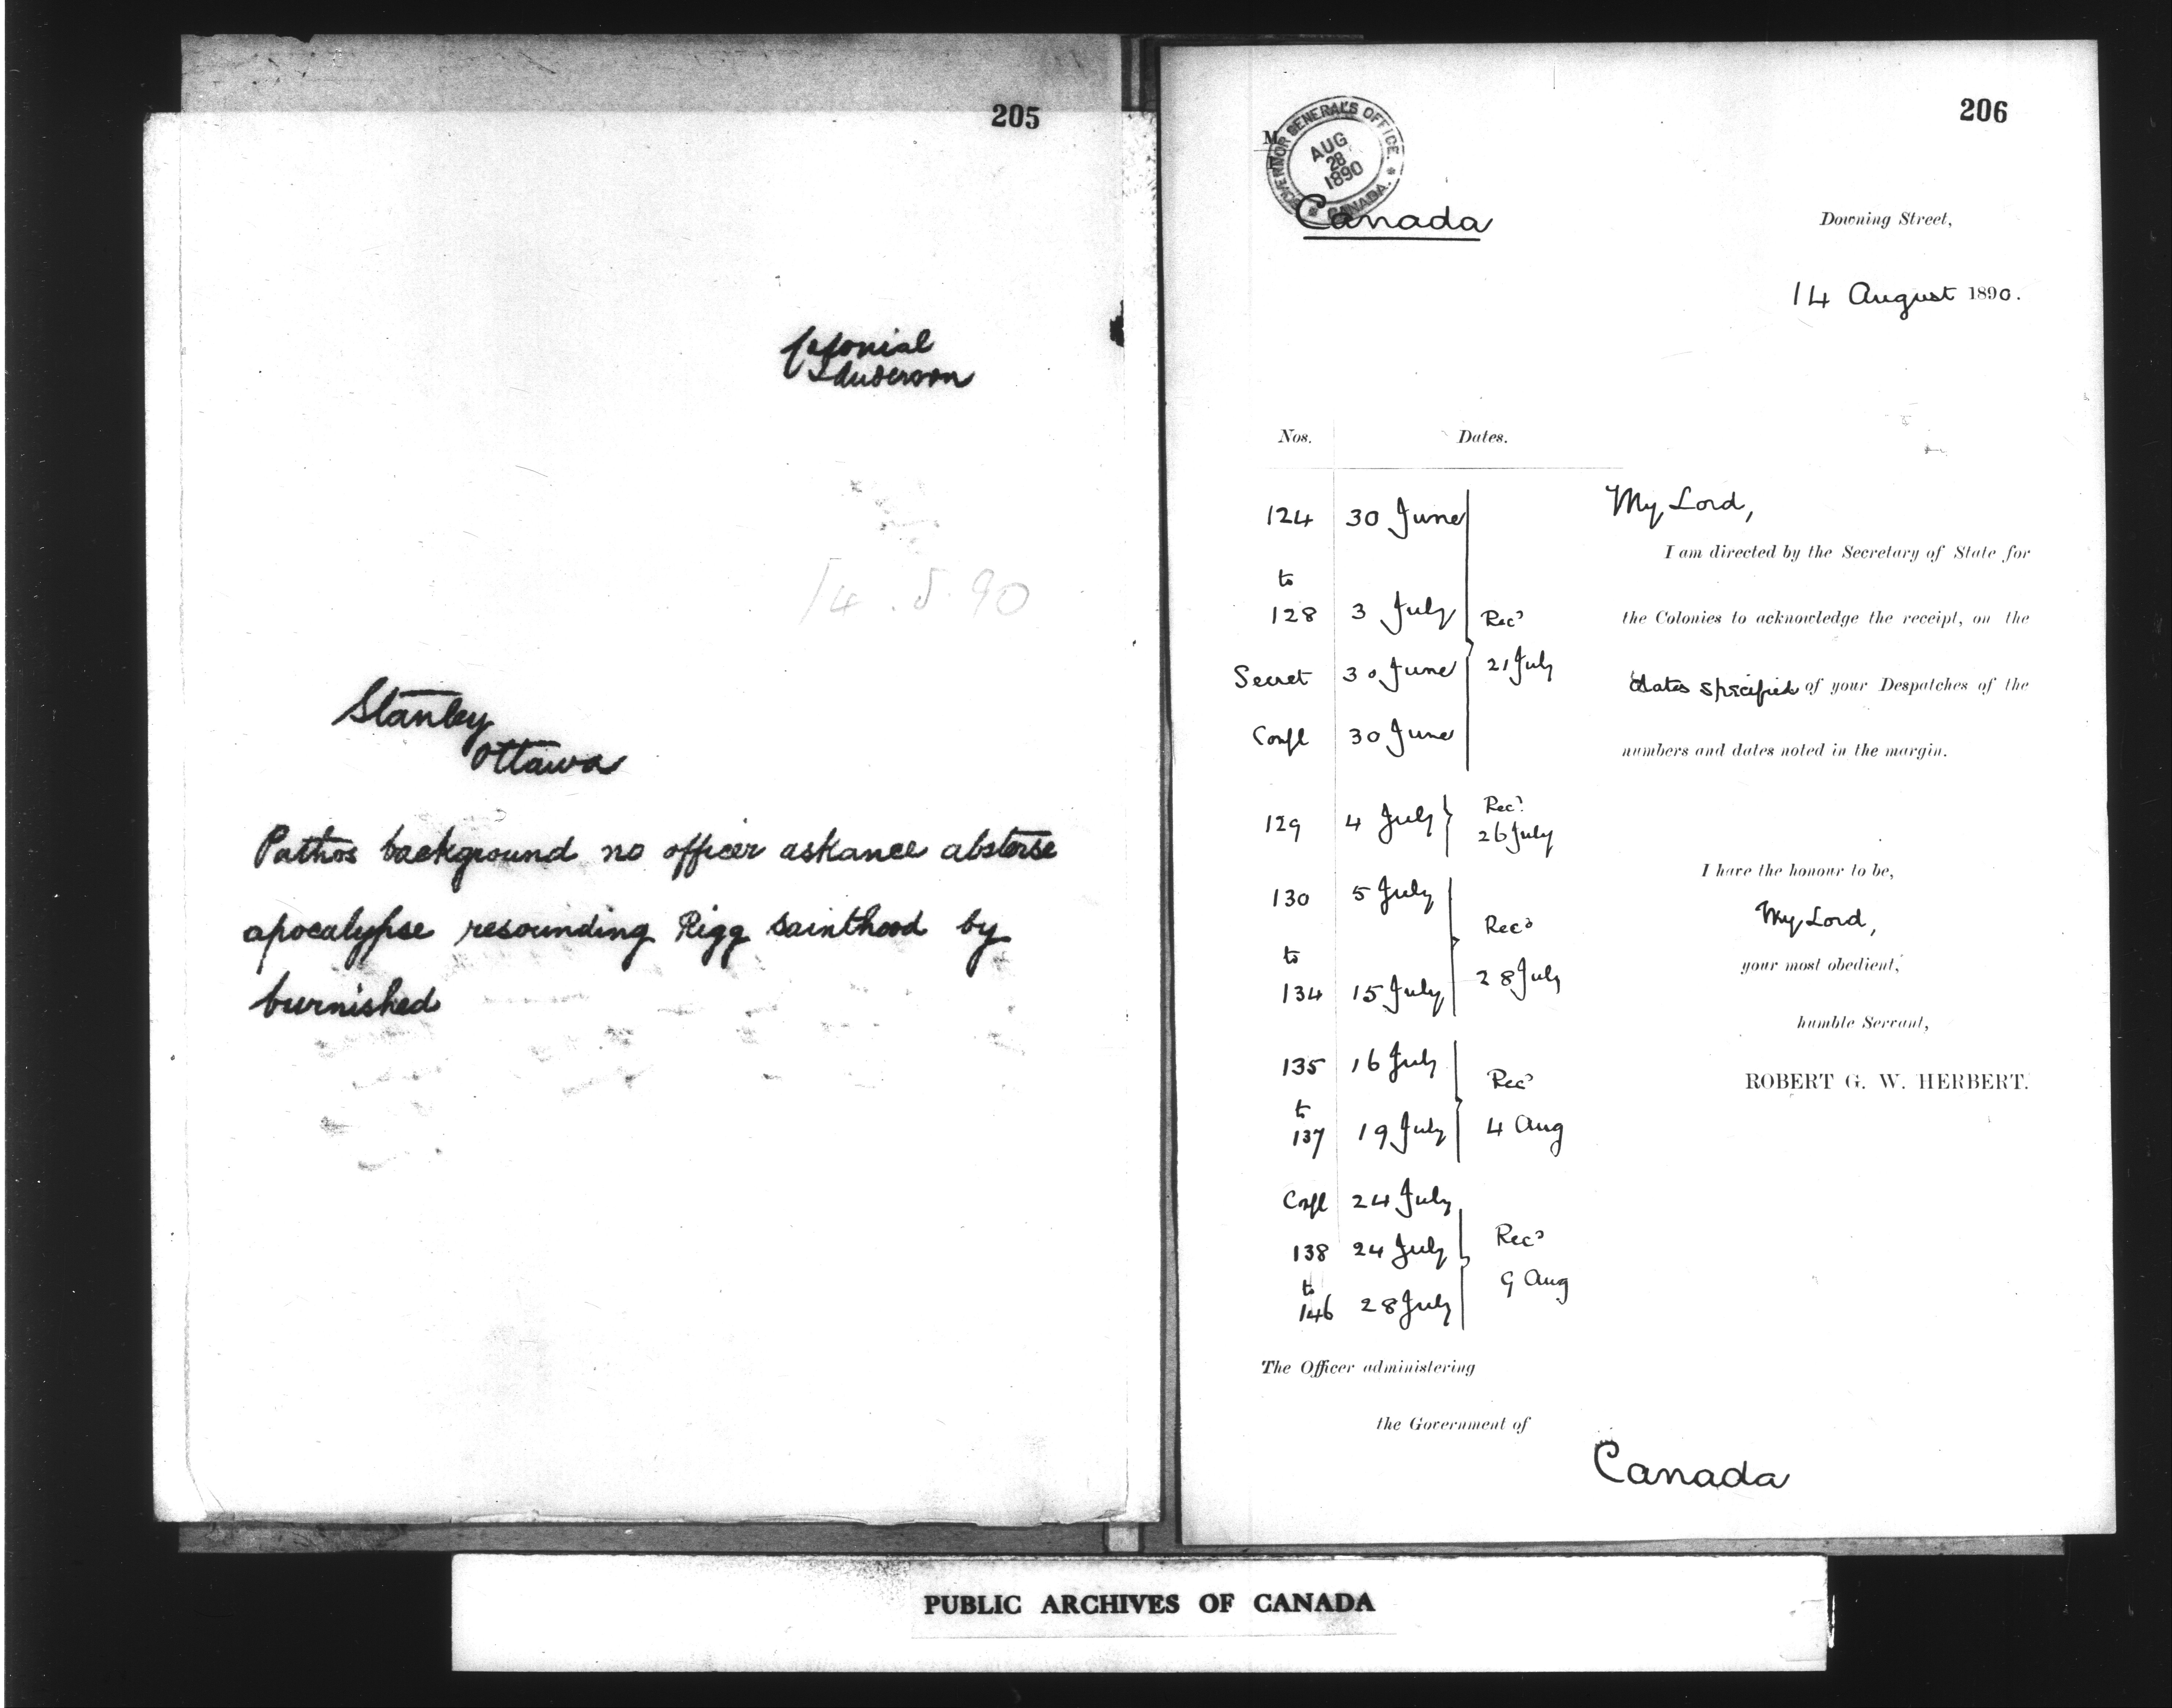 205
Colonial
London
14. 8. 90
Stanley
Ottawa
Pathos background no officer askance absterse
apocalypse resounding Rigg sainthood by
burnished
206
GOVERNOR GENERAL'S OFFICE.
AUG
28
1890
* CANADA. *
Canada
Downing Street,
14 August 1890.
Nos. Dates.
124 30 June
to
128 3 July
Secret 30 June
Confl 30 June
Recd
21 July
129 4 July
Recd
26 July
130 5 July
to
134 15 July
Recd
28 July
135 16 July
to
137 19 July
Recd
4 Aug
Confl 24 July
138 24 July
to
146 28 July
Recd
9 Aug
My Lord,
I am directed by the Secretary of State for
the Colonies to acknowledge the receipt, on the
dates specified of your Despatches of the
numbers and dates noted in the margin.
I have the honour to be,
My Lord,
your most obedient,
humble Servant,
ROBERT G. W. HERBERT.
The Officer administering
the Government of
Canada
PUBLIC ARCHIVES OF CANADA